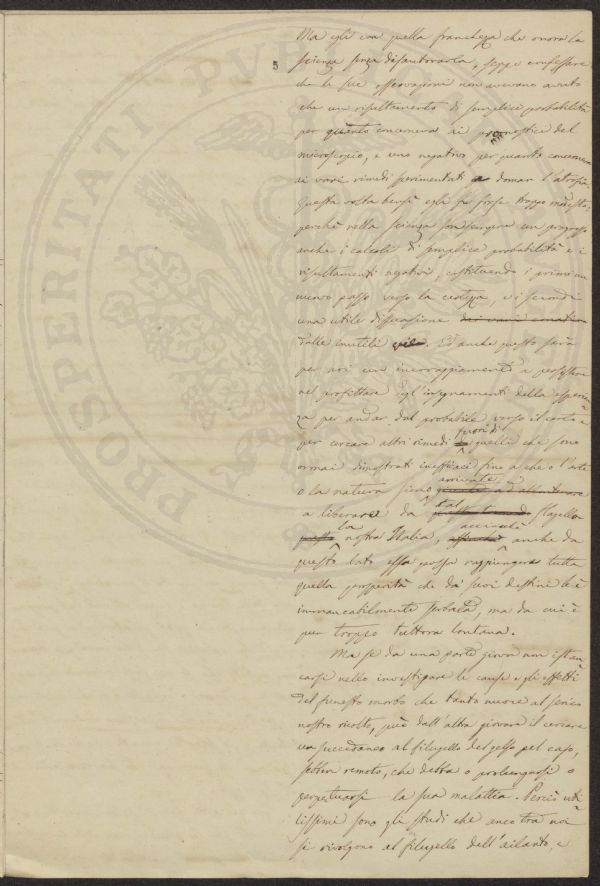 PROSPERITATI PUBLI
5
Ma egli con quella franchezza che onora la
scienza senza disautorarla, seppe confessare
che le sue osservazioni non avevano avuto
che un risultamento di semplice probabilità
per quanto concerneva ai pronostici del
microscopio, e uno negativo per quanto concerneva
ai vari rimedi sperimentati a domar l'atrofia.
Questa volta bensì egli fu forse troppo modesto;
perchè nella scienza son sempre un progresso
anche i calcoli di semplice probabilità e i
risultamenti negativi, costituendo i primi un
nuovo passo verso la certezza, e i secondi
una utile
dalle inutili. Ed anche questo sarà
per noi un incoraggiamento a persistere
nel profittare degl'insegnamenti della esperien-
za per andar dal probabile verso il certo e
per cercare altri rimedi fuori di quelli che sono
ormai dimostrati inefficaci fino a che o l'arte
o la natura sieno arrivate
a liberare da tal flagello
la nostra Italia, acciocchè anche da
questo lato essa possa raggiungere tutta
quella prosperità che da' suoi destini le è
immancabilmente serbata, ma da cui è
pur troppo tuttora lontana.
Ma se da una parte giova non istan-
carsi nello investigare le cause e gli effetti
del funesto morbo che tanto nuoce al serico
nostro ricolto, può dall'altra giovare il cercare
un succedaneo al filugello del gelso pel caso,
sebben remoto, che debba o prolungarsi o
perpetuarsi la sua malattia. Perciò uti-
lissimi sono gli studi che anco tra noi
si rivolgono al filugello dell'ailanto, e